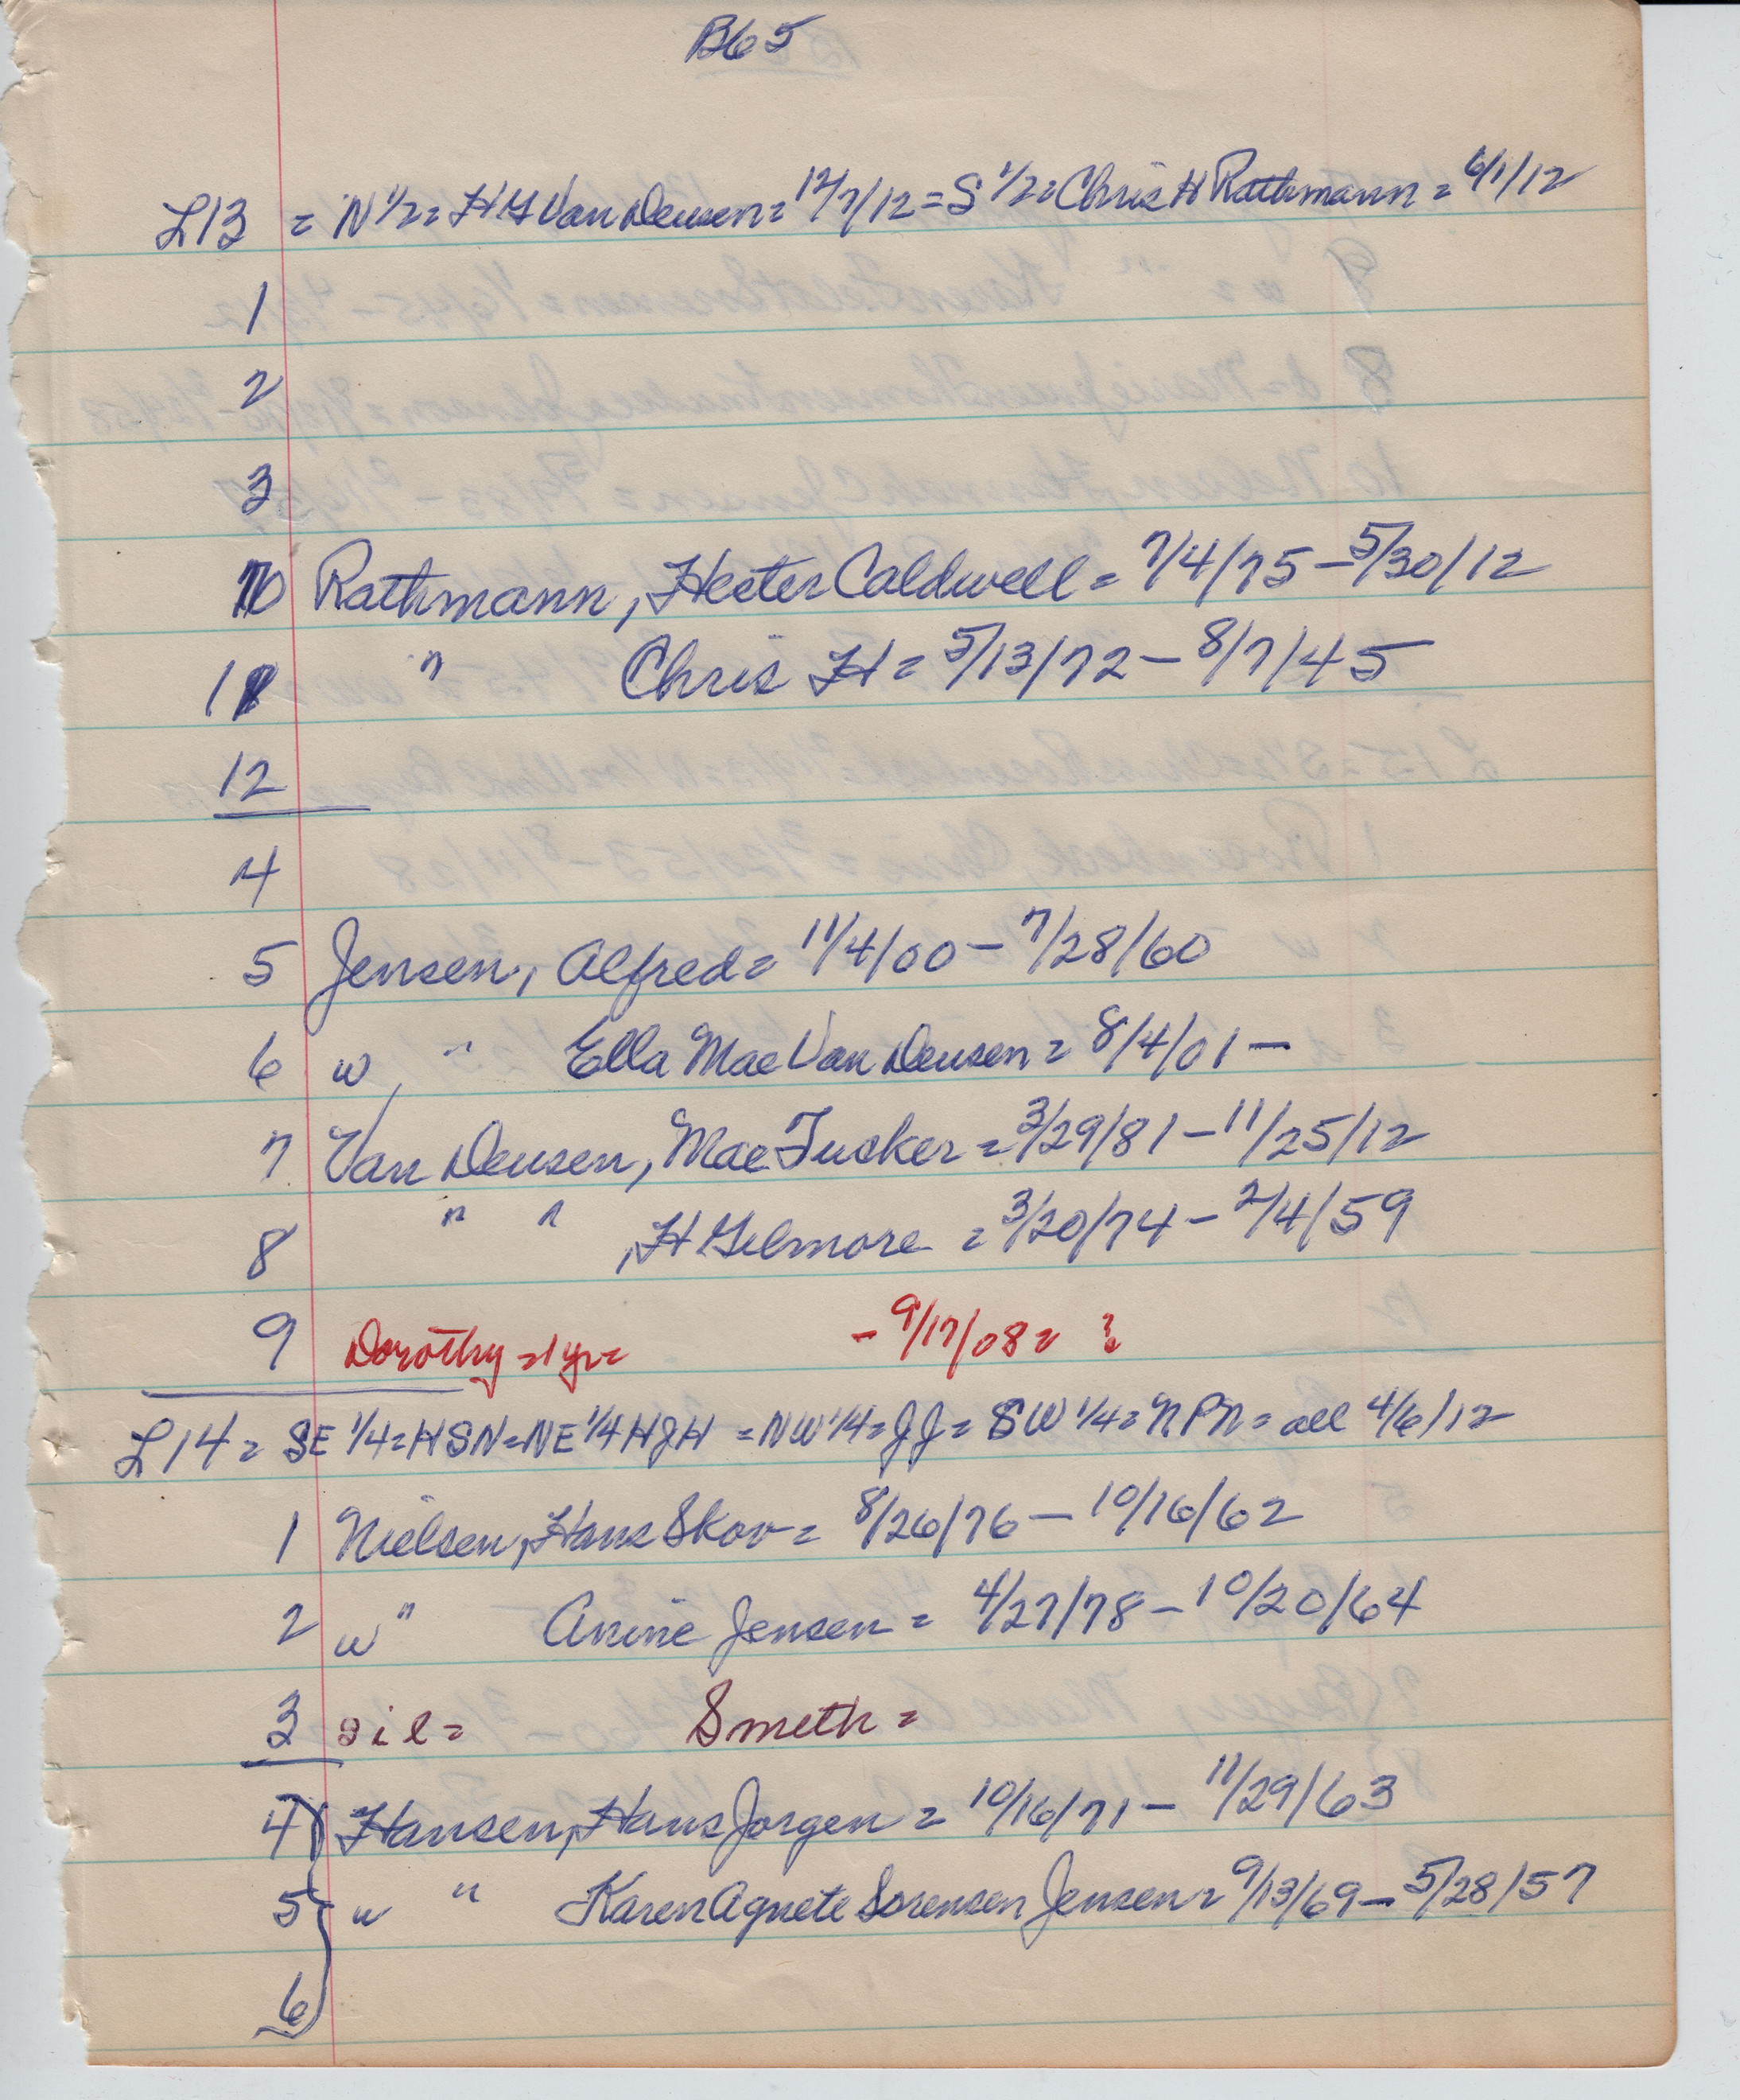 B65
L13 = N 1/2 = HG Van Deusen = 12/7/12 = S 1/2 = Chris H Rathmann = 6/1/12
1
2
3
10 Rathmann, Hester Caldwell = 7/4/75 - 5/30/12
11 " Chris H = 5/13/72 - 8/7/45
12
4
5 Jensen, Alfred = 11/4/00 - 7/28/60
6 w " Ella Mae Van Deusen = 8/4/01 -
7 Van Deusen, Mae Tucker = 3/29/81 - 11/25/12
8 " " , H Gilmore = 3/20/74 - 2/4/59
9 Dorothy = 1 yr = - 9/17/08 = ?
L14 = SE 1/4 = HSN = NE 1/4 HJH = NW 1/4 = JJ = SW 1/4 = NPN = all 4/6/12
1 Nielsen, Hans Skov = 8/26/76 - 10/16/62
2 w " Anine Jensen = 4/27/78 - 10/20/64
3 sil = Smith =
4 Hansen, Hans Jorgen = 10/16/71 - 11/29/63
5 w " Karen Agnete Sorensen Jensen = 9/13/69 - 5/28/57
6